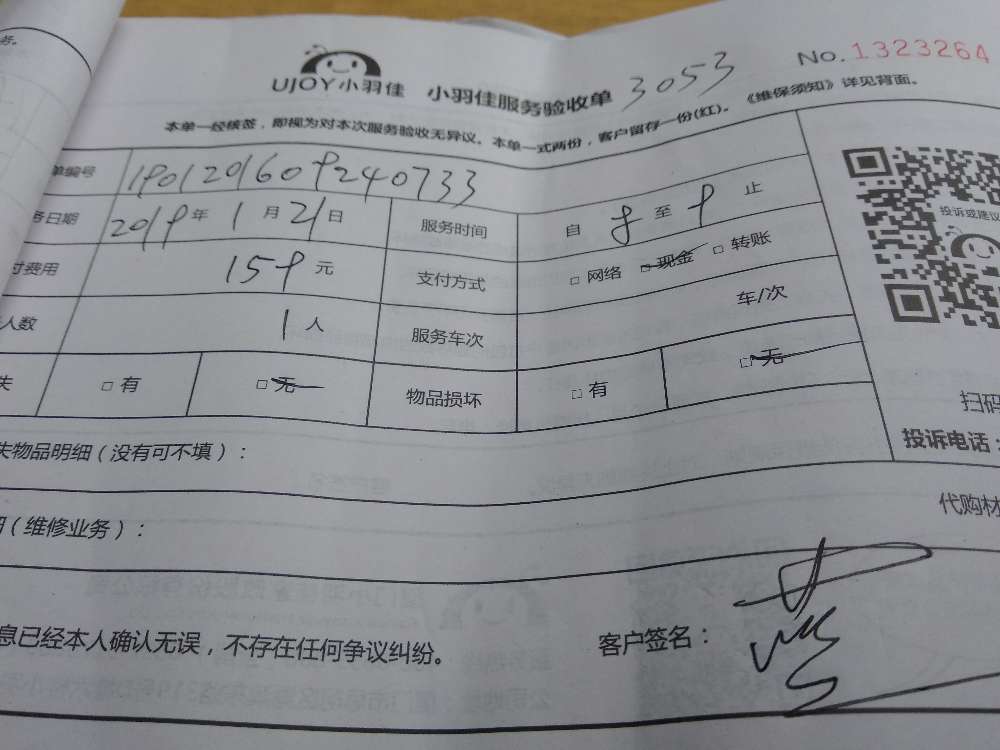 务。
UJOY小羽佳 小羽佳服务验收单 3053 No.1323264
本单一经核签，即视为对本次服务验收无异议。本单一式两份，客户留存一份(红)。《维保须知》详见背面。
单编号 1901201609240733
务日期 2019年1月21日 服务时间 自 8 至 9 止
付费用 159元 支付方式 □ 网络 □ 现金 □ 转账
人数 1人 服务车次 车/次
失 □ 有 □ 无 物品损坏 □ 有 □ 无
投诉或建议
扫码
失物品明细（没有可不填）： 投诉电话：
代购材
细（维修业务）：
息已经本人确认无误，不存在任何争议纠纷。 客户签名：